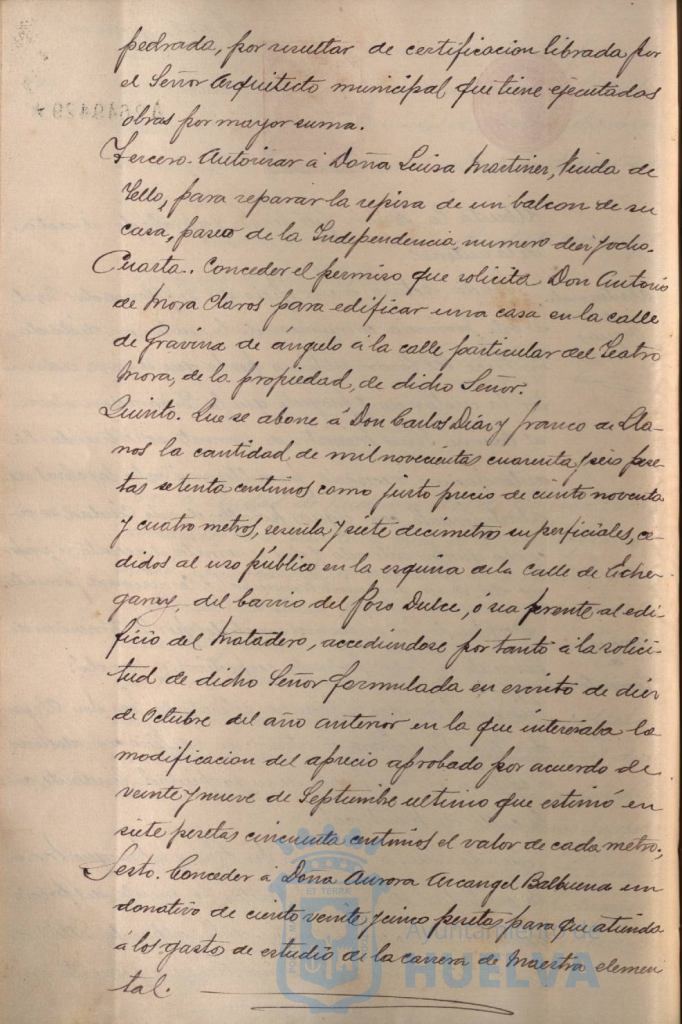 pedrada, por resultar de certificacion librada por
el Señor Arquitecto municipal que tiene ejecutadas
obras por mayor suma.
Tercero. Autorizar á Doña Luisa Martinez, Viuda de
Tello, para reparar la repisa de un balcon de su
casa, paseo de la Independencia numero diez y ocho.
Cuarta. Conceder el permiso que solicita Don Antonio
de Mora Claros para edificar una casa en la calle
de Gravina de ángulo á la calle particular del Teatro
Mora, de la propiedad, de dicho Señor.
Quinto. Que se abone á Don Carlos Diaz y franco de Lla-
nos la cantidad de mil novecientas cuarenta y seis pese-
tas setenta centimos como justo precio de ciento noventa
y cuatro metros, sesenta y siete decimetro superficiales, ce-
didos al uso público en la esquina de la calle de Eche-
garay, del barrio del Pozo Dulce, ó sea frente al edi-
ficio del Matadero, accediendose por tanto á la solici-
tud de dicho Señor formulada en escrito de diez
de Octubre del año anterior en la que interesaba la
modificacion del aprecio aprobado por acuerdo de
veinte y nueve de Septiembre ultimo que estimó en
siete pesetas cincuenta centimos el valor de cada metro;
Sesto. Conceder á Dona Aurora Arcangel Balbuena un
donativo de ciento veinte y cinco pesetas para que atienda
á los gasto de estudio de la carrera de Maestra elemen-
tal.
Ayuntamiento de
HUELVA